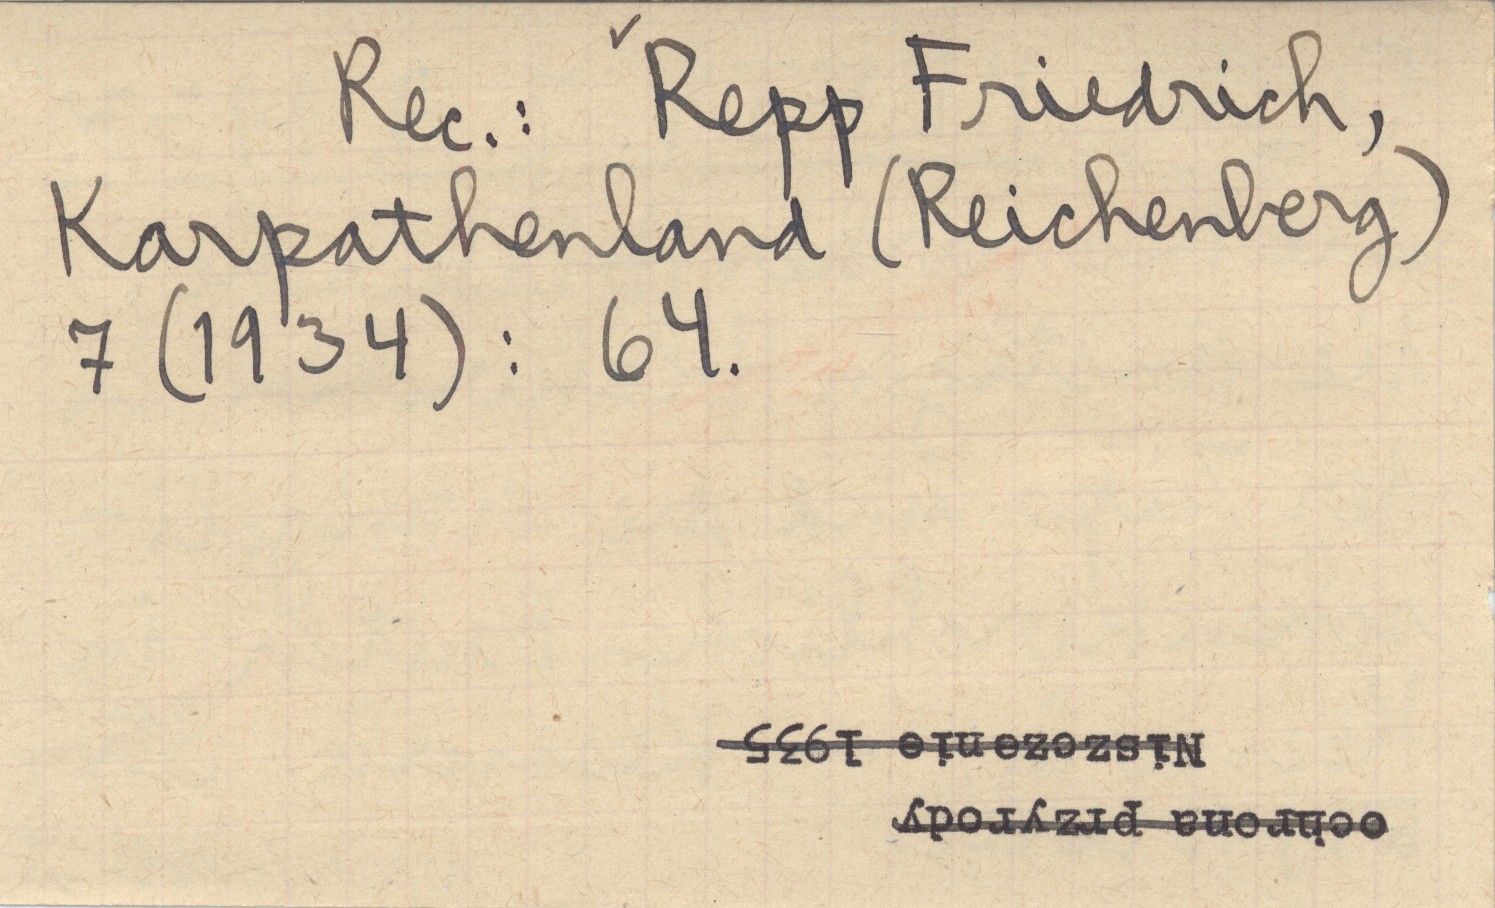 Rec.: Repp Friedrich,
Karpathenland (Reichenberg)
7 (1934): 64.
ochrona przyrody
Niszczenie 1935